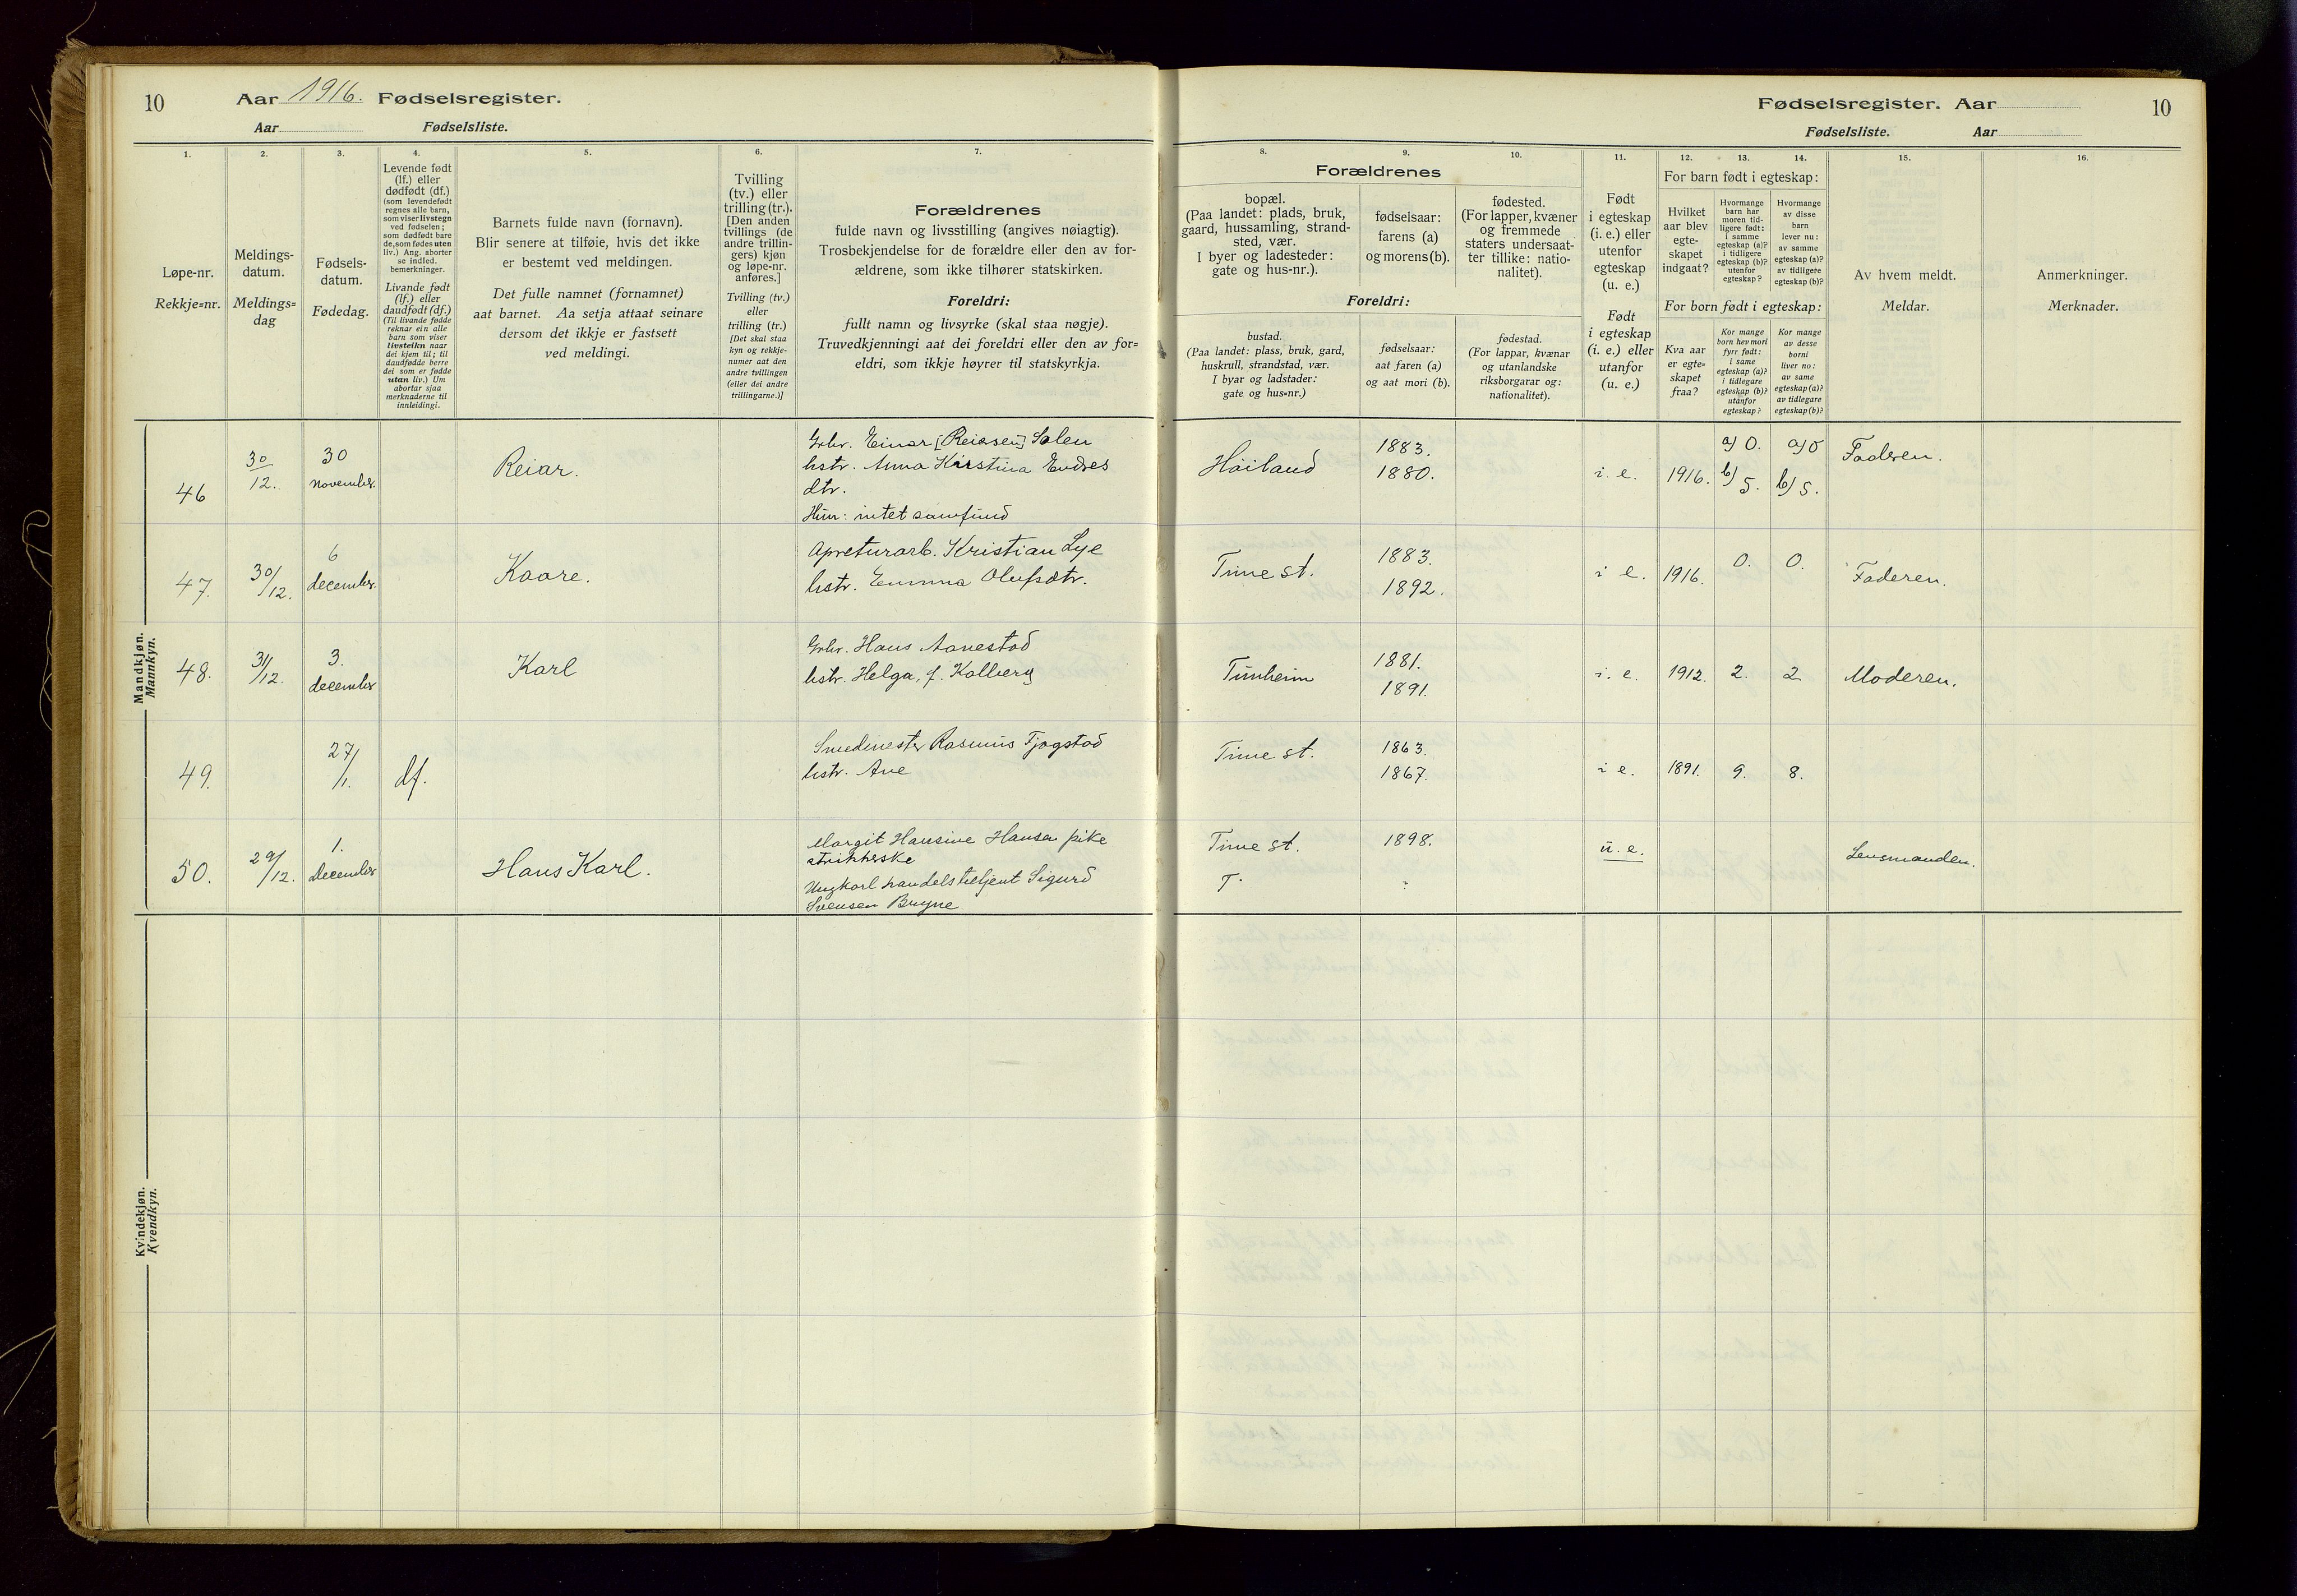 10 Aar 1916. Fødselsregister.
Aar Fødselsliste.
1.
Løpe-nr.
Rekkje=nr.
2.
Meldings-
datum.
Meldings=
dag
3.
Fødsels-
datum.
Fødedag.
4.
Levende født
(lf.) eller
dødfødt (df.)
(som levendefødt
regnes alle barn,
som viser livstegn
ved fødselen;
som dødfødt bare
de, som fødes uten
liv.) Ang. aborter
se indled.
bemerkninger.
Livande født
(lf.) eller
daudfødt (df.)
(Til livande fødde
reknar ein alle
barn som viser
livsteikn naar
dei kjem til; til
daudfødde berre
dei som er fødde
utan liv.) Um
abortar sjaa
merknaderne til
innleidingi.
5.
Barnets fulde navn (fornavn).
Blir senere at tilføie, hvis det ikke
er bestemt ved meldingen.
Det fulle namnet (fornamnet)
aat barnet. Aa setja attaat seinare
dersom det ikkje er fastsett
ved meldingi.
6.
Tvilling
(tv.) eller
trilling (tr.).
[Den anden
tvillings (de
andre trillin-
gers) kjøn
og løpe-nr.
anføres.]
Tvilling (tv.)
eller
trilling (tr.)
[Det skal staa
kyn og rekkje-
numer aat den
andre tvillingen
(eller dei andre
trillingarne.)]
7.
Forældrenes
fulde navn og livsstilling (angives nøiagtig).
Trosbekjendelse for de forældre eller den av for-
ældrene, som ikke tilhører statskirken.
Foreldri:
fullt namn og livsyrke (skal staa nøgje).
Truvedkjenningi aat dei foreldri eller den av for=
eldri, som ikkje høyrer til statskyrkja.
Mandkjøn.
Mannkyn.
46 30/12. 30 november. Reiar. Grbr. Einar [Reiersen] Salen
hstr. Anna Kirstina Endres
dtr.
Hun: intet samfund
47. 30/12. 6 december. Kaare. Apreturarb. Kristian Lye
hstr. Emma Olufsdtr.
48. 31/12. 3. december Karl Grbr. Hans Aanestad
hstr. Helga, f. Kalberg
49. 27/1. df. Smedmester Rasmus Tjøgstad
hstr. Ane
50. 29/12. 1. December Hans Karl. Margit Hansine Hansen pike
strikkerske
Ungkarl handelsbetjent Sigurd
Svensen Bryne
Kvindekjøn.
Kvendkyn.
Fødselsregister. Aar 10
Fødselsliste. Aar
8.
Forældrenes
bopæl.
(Paa landet: plads, bruk,
gaard, hussamling, strand-
sted, vær.
I byer og ladesteder:
gate og hus-nr.).
Foreldri:
bustad.
(Paa landet: plass, bruk, gard,
huskrull, strandstad, vær.
I byar og ladstader:
gate og hus=nr.)
9.
fødselsaar:
farens (a)
og morens (b).
fødselsaar:
aat faren (a)
og aat mori (b).
10.
fødested.
(For lapper, kvæner
og fremmede
staters undersaat-
ter tillike: natio-
nalitet).
fødestad.
(For lappar, kvænar
og utanlandske
riksborgarar og:
nationalitet).
11.
Født
i egteskap
(i. e.) eller
utenfor
egteskap
(u. e.)
Født
i egteskap
(i. e.) eller
utanfor
(u. e.)
12. 13. 14.
For barn født i egteskap:
Hvilket
aar blev
egte-
skapet
indgaat?
Hvormange
barn har
moren tid-
ligere født:
i samme
egteskap (a)?
i tidligere
egteskap (b)?
utenfor
egteskap?
Hvormange
av disse
barn
lever nu:
av samme
egteskap (a)?
av tidligere
egteskap (b)?
For born født i egteskap:
Kva aar
er egte=
skapet
fraa?
Kor mange
born hev mori
fyrr født:
i same
egteskap (a)?
i tidlegare
egteskap (b)?
utanfor
egteskap?
Kor mange
av desse
borni
liver no:
av same
egteskap (a)?
av tidlegare
egteskap (b)?
15.
Av hvem meldt.
Meldar.
16.
Anmerkninger.
Merknader.
Høiland 1883. 1880. i. e. 1916. a) 0. b) 5. a) 0 b) 5. Faderen.
Time st. 1883. 1892. i e. 1916. 0. 0. Faderen.
Tunheim 1881. 1891. i. e. 1912. 2. 2 Moderen.
Time st. 1863. 1867. i e. 1891. 9. 8.
Time st. 1898. u. e. Lensmanden.
T. ?